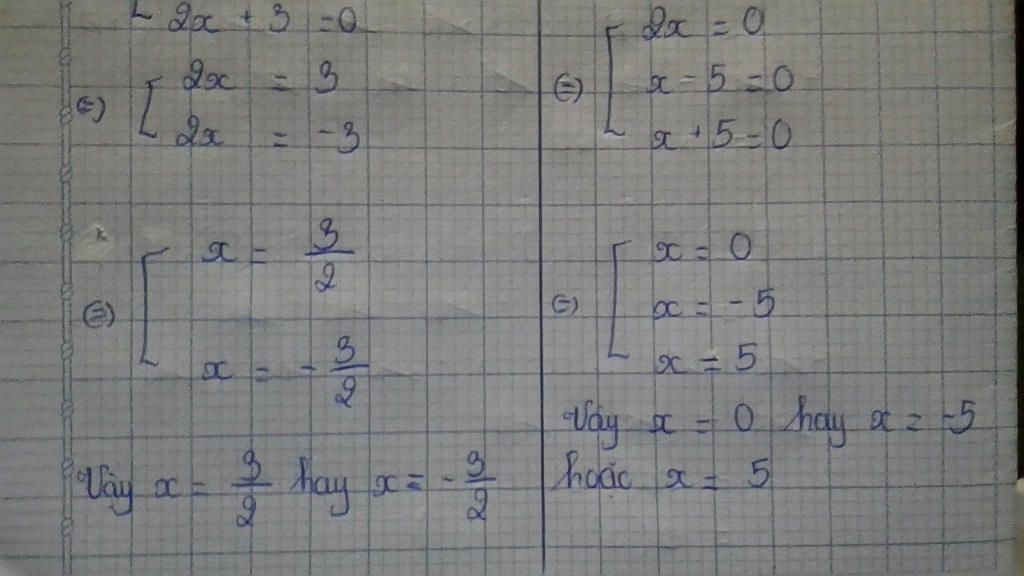 2x + 3 = 0
2x = 3
⇔
2x = -3
x = 3/2
⇔
x = - 3/2
Vậy x = 3/2 hay x = - 3/2
2x = 0
⇔ x - 5 = 0
x + 5 = 0
x = 0
⇔ x = -5
x = 5
Vậy x = 0 hay x = -5
hoặc x = 5